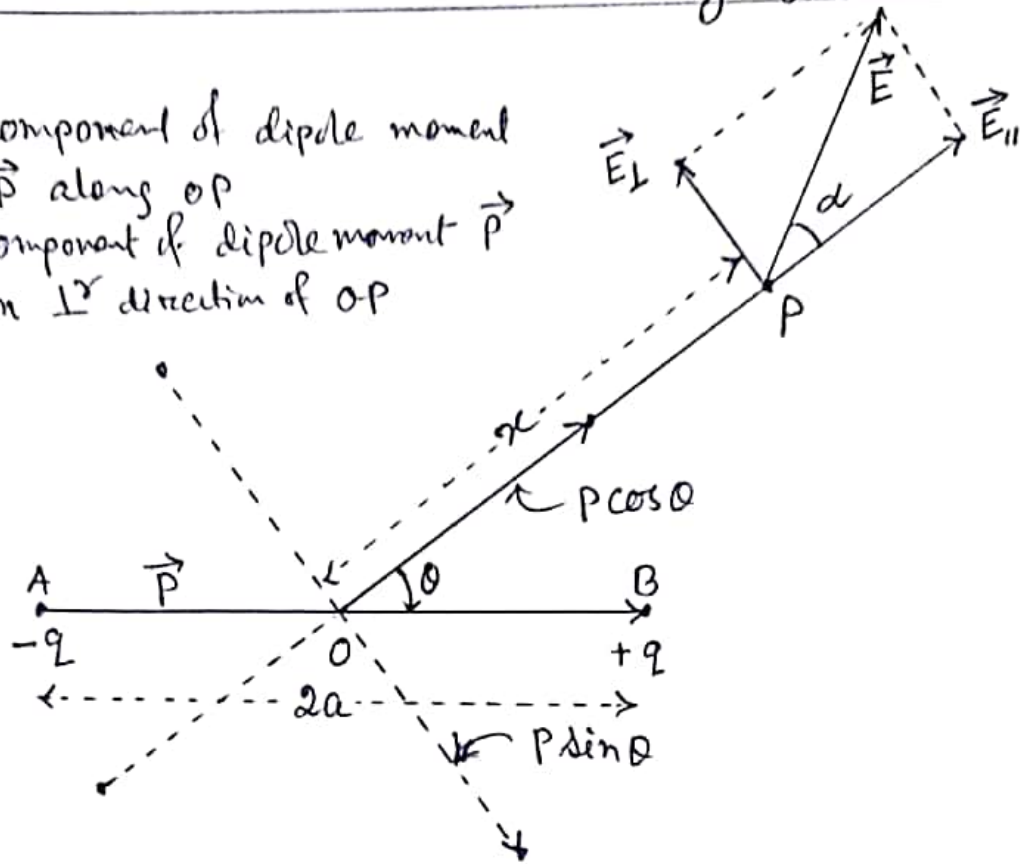 omponent of dipole moment
p⃗ along OP
omponent of dipole moment p⃗
n ⊥r direction of OP
E⃗
E⃗∥
E⃗⊥
α
P
x
p cos θ
θ
A
p⃗
B
-q
O
+q
2a
p sin θ